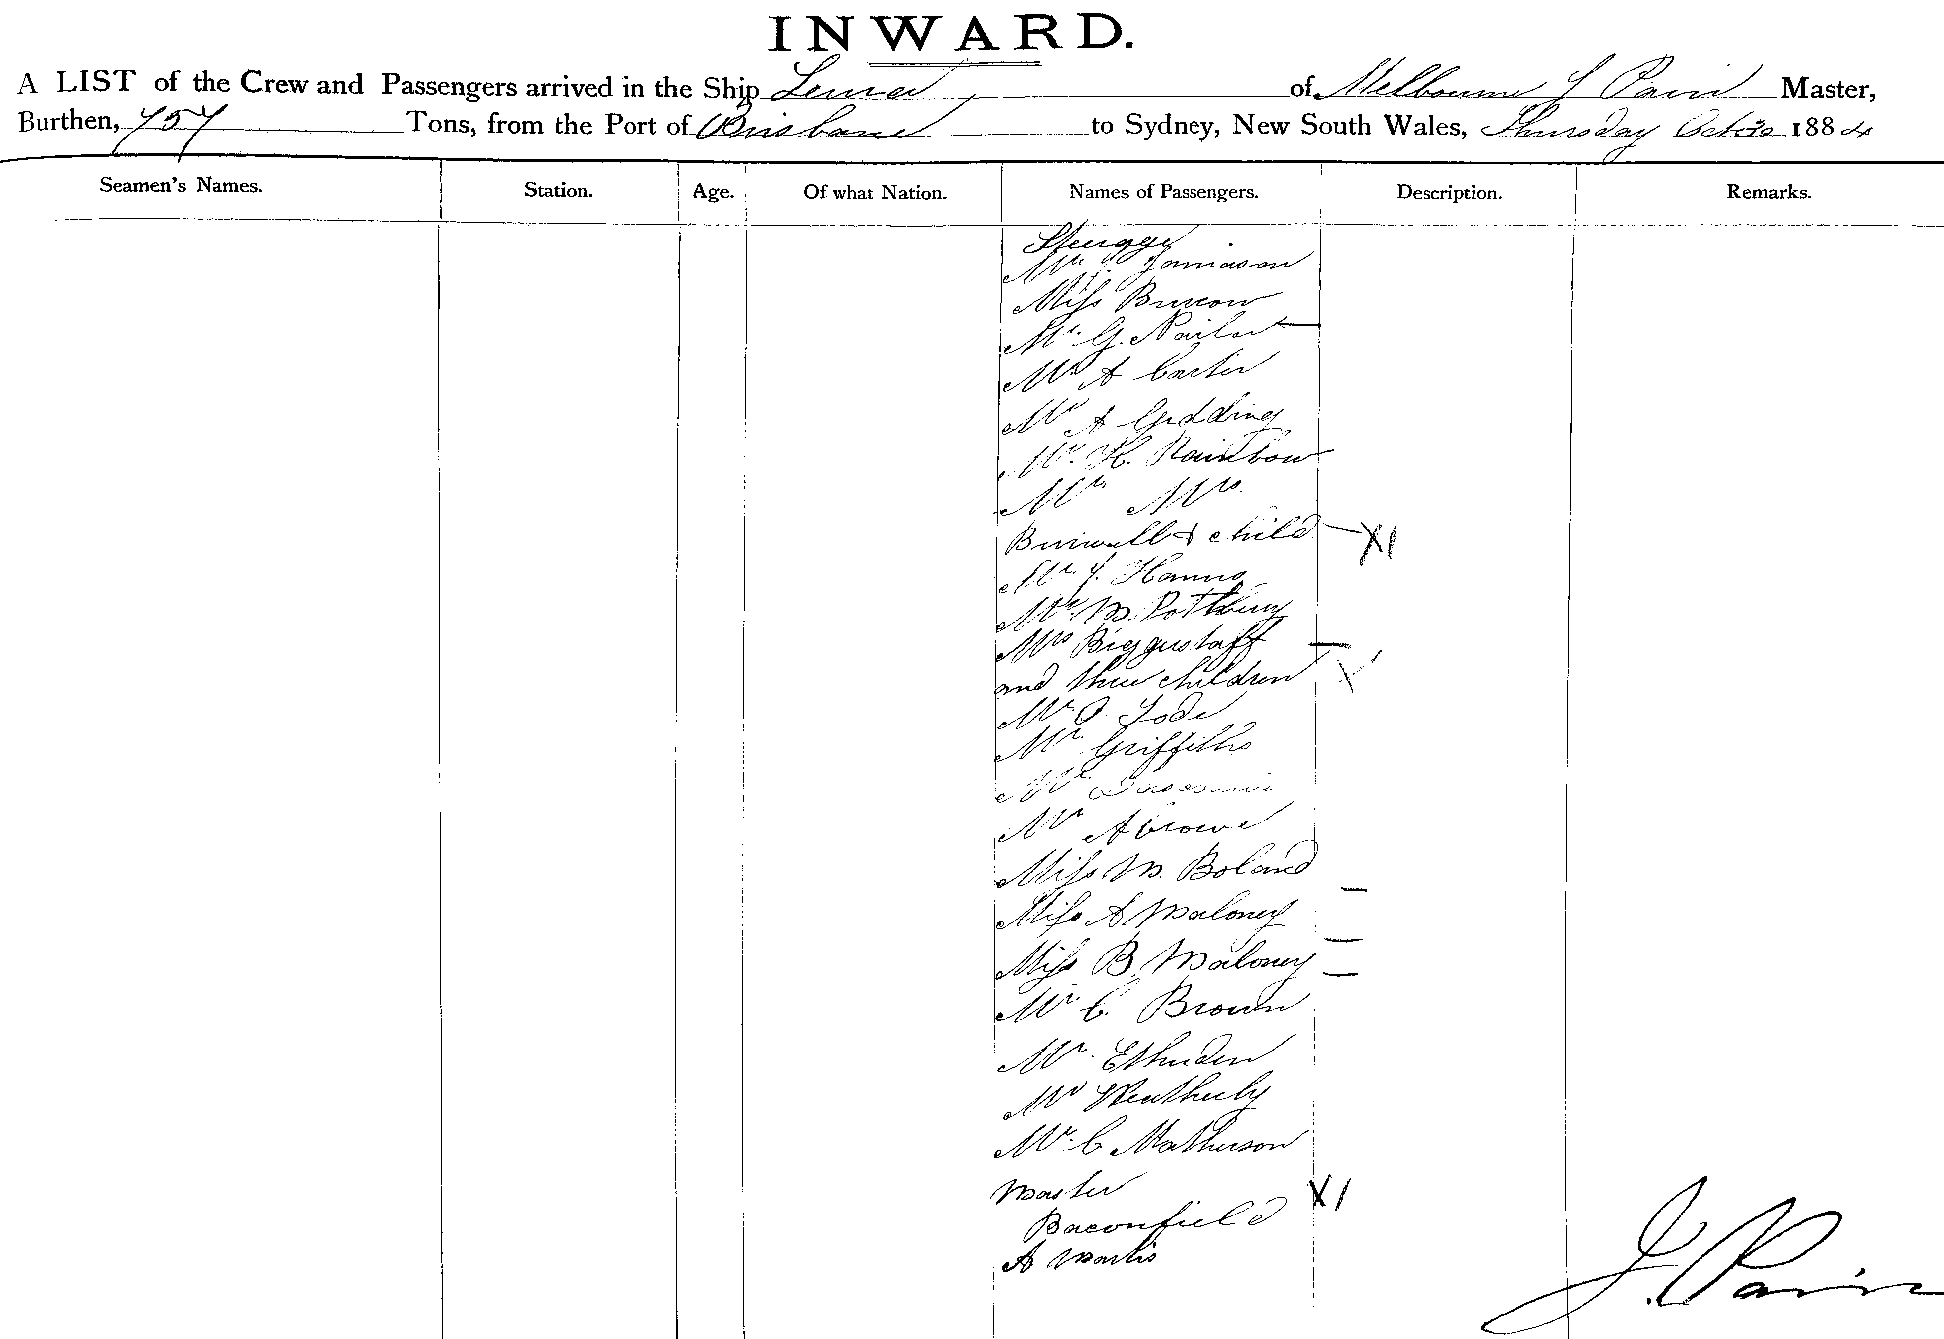 INWARD.
A LIST of the Crew and Passengers arrived in the Ship of Melbourne J Pain Master,
Burthen, 757 Tons, from the Port of Brisbane to Sydney, New South Wales, Thursday Oct 30 1884
Seamen's Names. Station. Age. Of what Nation. Names of Passengers. Description. Remarks.
Steerage
Jamieson
Miss
Mr G.
Mr A Carter
Mr A Gedding
Mr. H. Rainbow
Mr Mrs
Burwell & child X1
Mr. J. Hanna
Mr. M. Pottbury
Mrs Biggerstaff
and three children
Mr
Mr Griffiths
Mr
Mr A Crowe
Miss M. Boland
Miss A Maloney
Miss B. Maloney
Mr C. Brown
Mr.
Mr Weatherly
Mr. C Matherson
Master X1
Baconfield
A
J. Pain